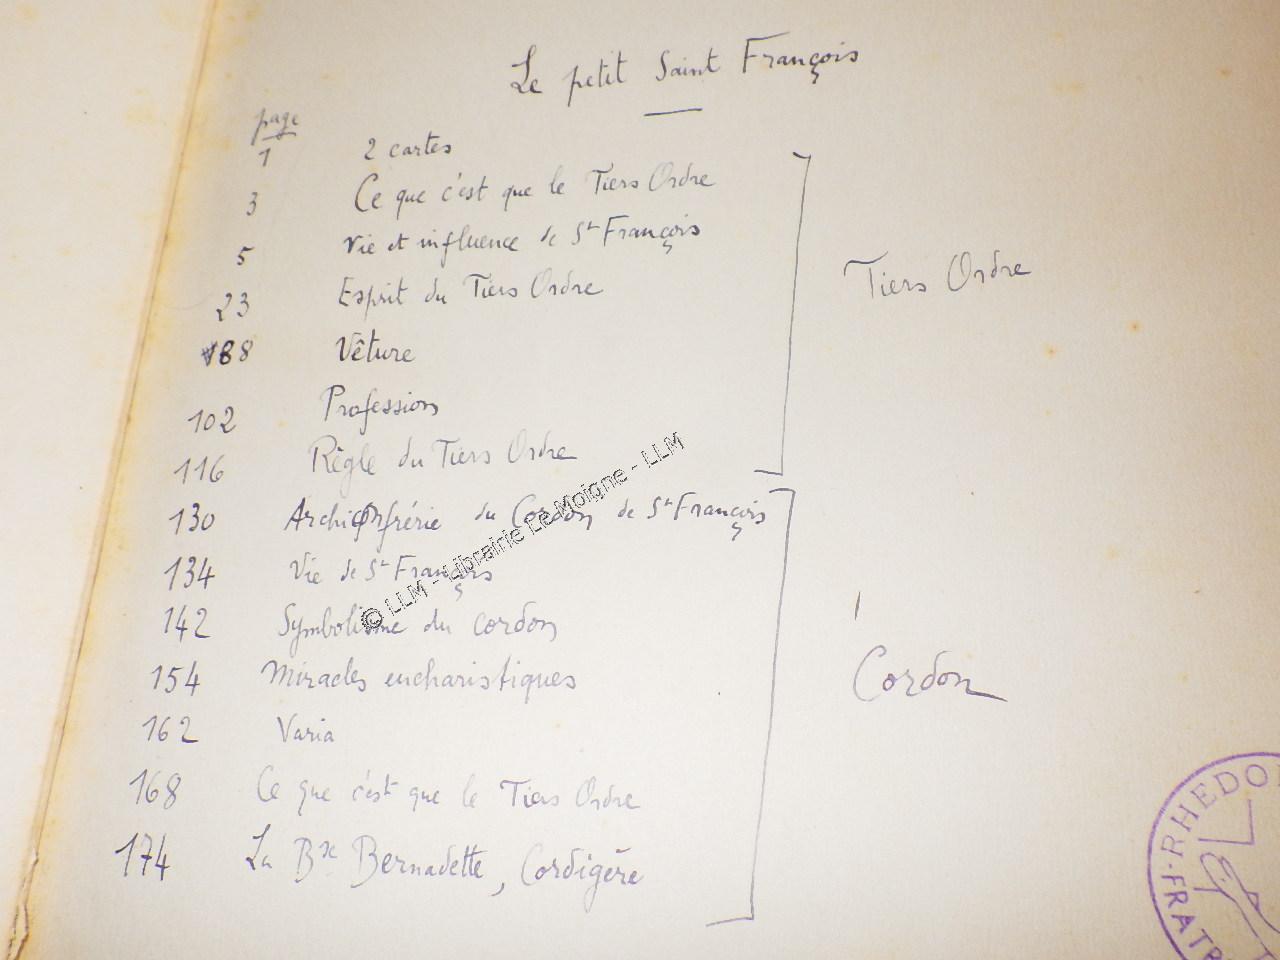 Le petit Saint François
page
1 2 cartes
3 Ce que c'est que le Tiers Ordre
5 Vie et influence de St François
23 Esprit du Tiers Ordre
88 Vêture
102 Profession
116 Règle du Tiers Ordre
Tiers Ordre
130 Archiconfrérie du Cordon de St François
134 Vie de St François
142 Symbolisme du cordon
154 Miracles eucharistiques
162 Varia
168 Ce que c'est que le Tiers Ordre
174 La Bse Bernadette, Cordigère
Cordon
© LLM - Librairie Le Moigne - LLM
RHEDO
FRATR